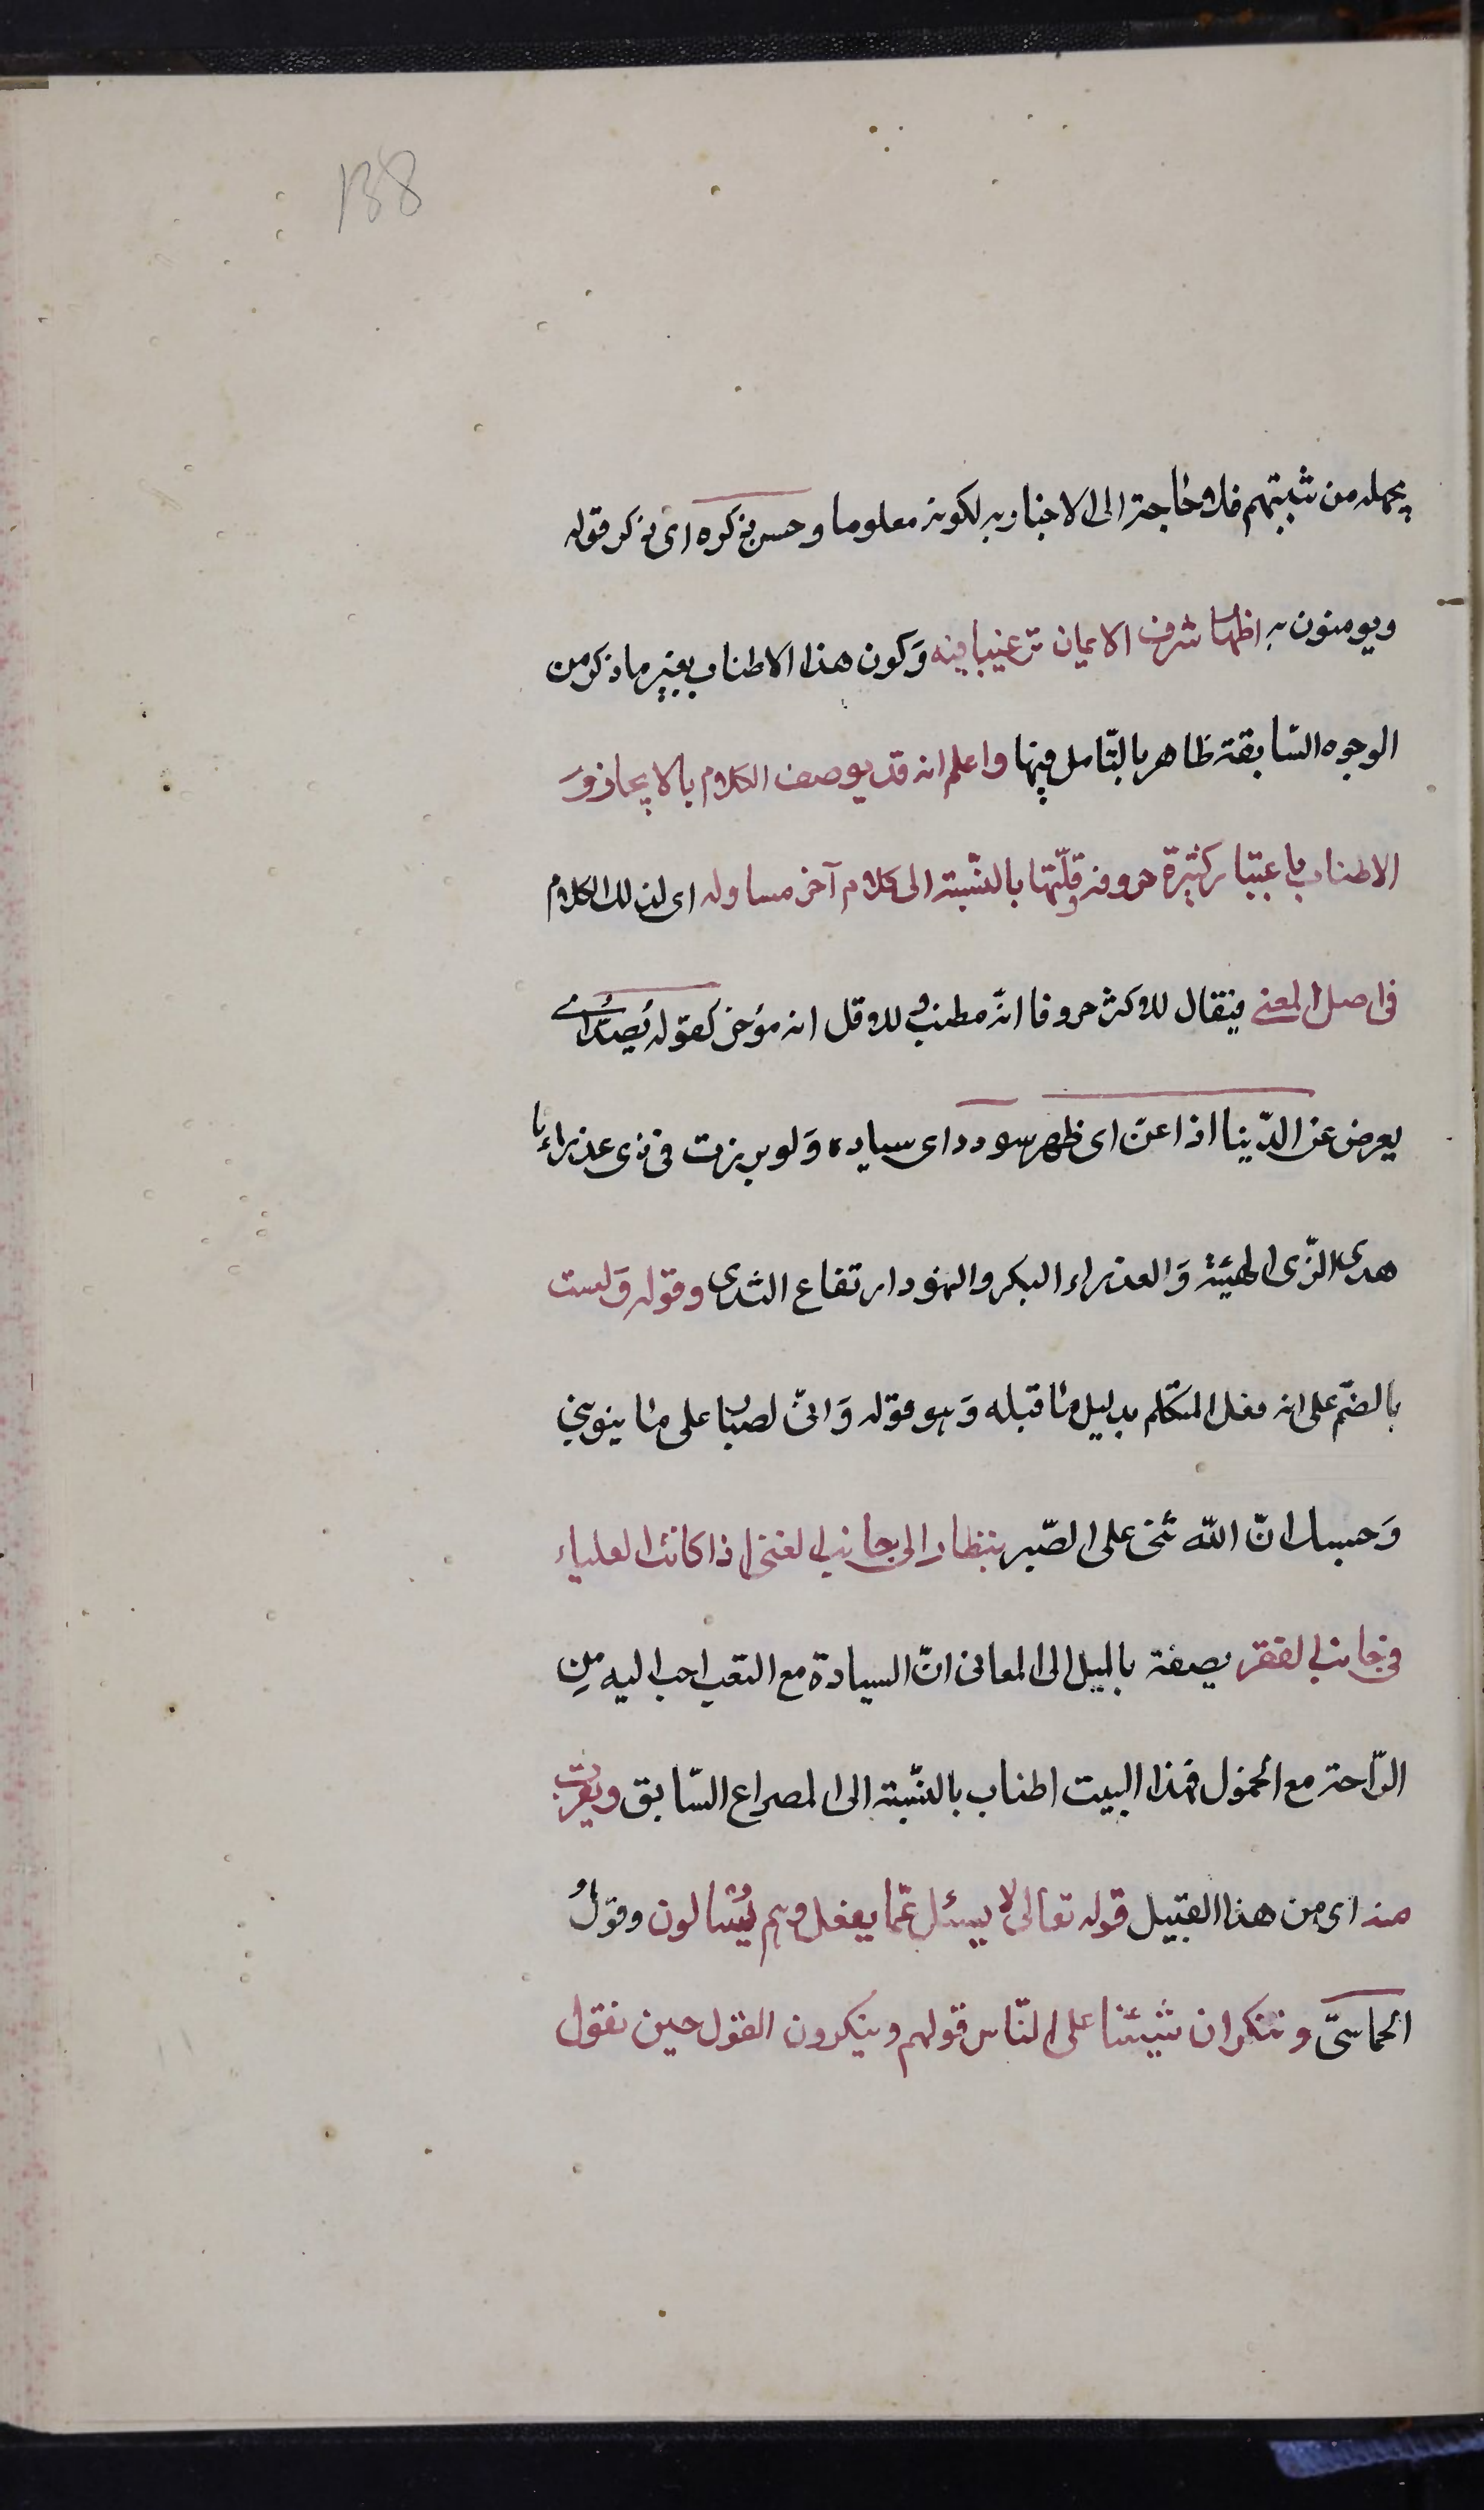 138
يجهله من شبتهم فلا حاجة الى الاخبار به لكونه معلوما و حسن ذكره اى ذكر قوله
ويومنون به اظهار شرف الايمان ترغيبا فيه وَكون هذا الاطناب بغير ما ذكر من
الوجوه السّابقة ظاهر بالتّامل فيها واعلم انه قد يوصف الكلام بالايجاز وَ
الاطناب باعتبار كثرة حروفه وقلّتها بالنّسبة الى كلام آخر مساو له اى لذلك الكلام
فى اصل المعنى فيقال للاكثر حروفا انّه مطنب وللاقل انه موجز كقوله يَصُدُّ اى
يعرض عن الدّينا اذا عنّ اى ظهر سودد اى سياده وَلو برزت فى زى عذراء نا
هدى الزّى الهيئة وَالعذراء البكر والنهود ارتفاع الثدى وقوله وَلست
بالضمّ على انه فعل المتكلم بدليل ما قبله وَهو قوله وَانّى لصبّار على ما ينوبنى
وَحسبك انّ اللّه اثنى على الصّبر بنظار الى جانب الغنى اذا كانت العلياء
فى جانب الفقر يصفه بالميل الى المعانى انّ السيادة مع التعب احب اليه مِن
الرّاحة مع الخمول فهذا البيت اطناب بالنّسبة الى المصراع السّابق ويقرب
منه اى من هذا القبيل قوله تعالى لا يسئل عمّا يفعل وهم يُسْالون وقولُ
الحماسىّ و ننكر ان شيئنا على النّاس قولهم وينكرون القول حين نقول